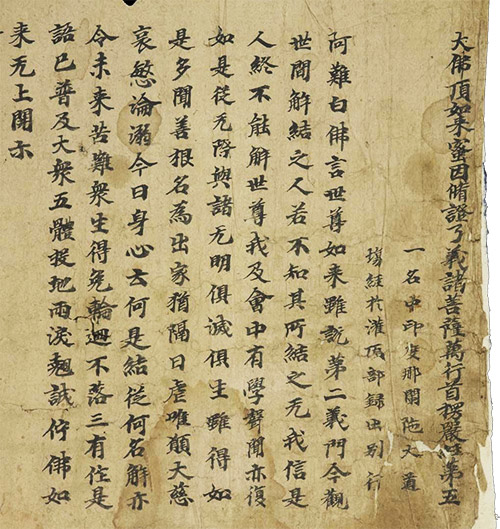 大佛頂如来蜜因脩證了義諸菩薩萬行首楞嚴経第五
一名中印度那闌陁大道
場経於灌頂部録出別行
阿難白佛言世尊如来雖說第二義門今觀
世間解結之人若不知其所結之无我信是
人終不能解世尊我及會中有學聲聞亦復
如是從无際與諸无明俱滅俱生雖得如
是多聞善根名為出家猶隔日虐唯願大慈
哀愍淪溺今日身心云何是結從何名解亦
令未来苦難衆生得免輪迴不落三有住是
語已普及大衆五體投地雨淚翹誠佇佛如
来无上開示